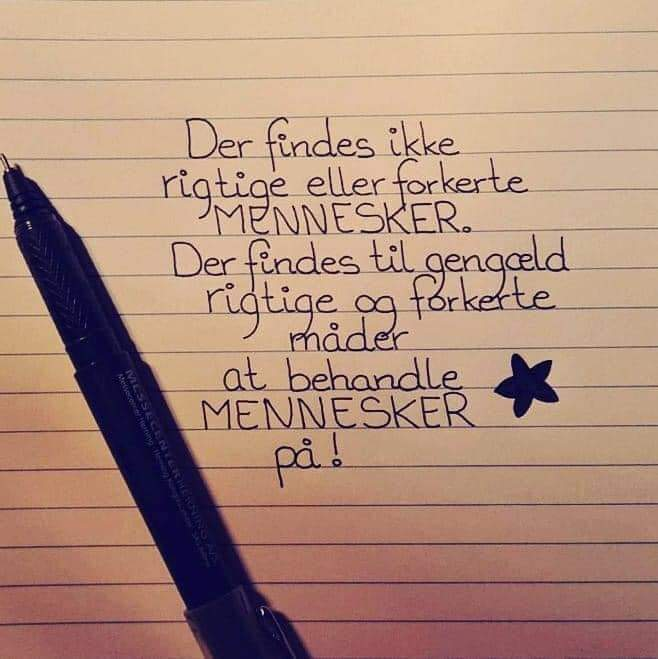 Der findes ikke
rigtige eller forkerte
MENNESKER.
Der findes til gengæld
rigtige og forkerte
måder
at behandle
MENNESKER
på!
MESSECENTER HERNING A/S